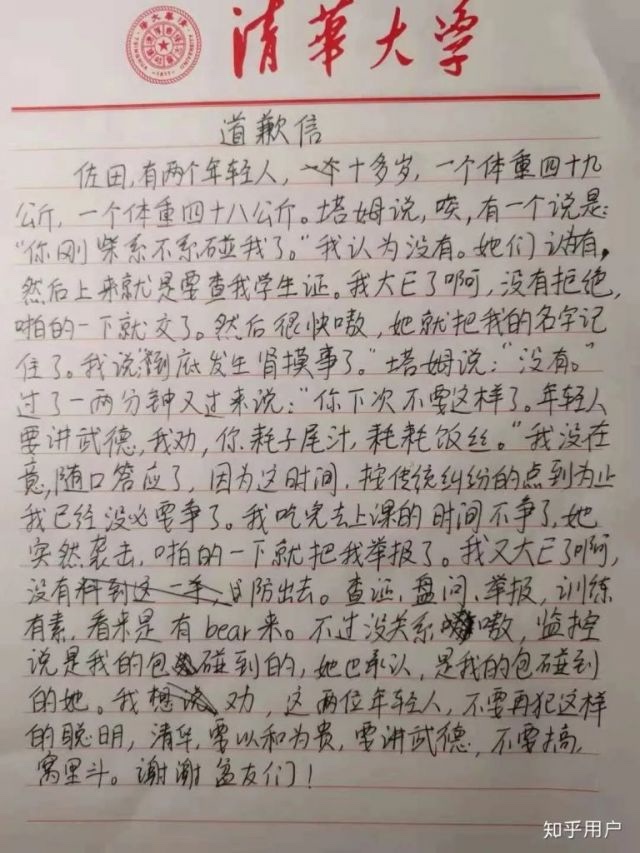 清華大学
道歉信
佐田,有两个年轻人,一个十多岁,一个体重四十九
公斤,一个体重四十八公斤。塔姆说,唉,有一个说是:
“你刚柴系不系碰我了。”我认为没有。她们认为有,
然后上来就是要查我学生证。我大E了啊,没有拒绝,
啪的一下就交了。然后很快嗷,她就把我的名字记
住了。我说“到底发生肾摸事了。”塔姆说:“没有。”
过了一两分钟又过来说:“你下次不要这样了。年轻人
要讲武德,我劝,你耗子尾汁,耗耗饭丝。”我没在
意,随口答应了,因为这时间,按传统纠纷的点到为止
我已经没必要争了。我吃完去上课的时间不争了,她
突然袭击,啪的一下就把我举报了。我又大E了啊,
没有料到这一手,防出去。查证,盘问,举报,训练
有素,看来是有bear来。不过没关系嗷,监控
说是我的包碰到的,她也承认,是我的包碰到
的她。我想说劝,这两位年轻人,不要再犯这样
的聪明,清华,要以和为贵,要讲武德,不要搞,
窝里斗。谢谢盆友们!
知乎用户